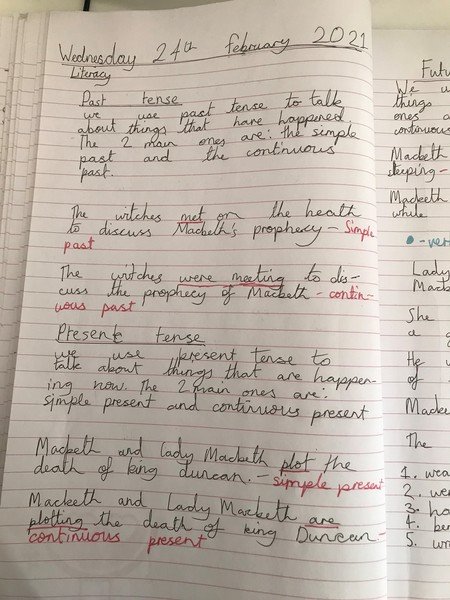 Wednesday 24th february 2021
Literacy
Past tense
we use past tense to talk
about things that have happened.
The 2 main ones are: the simple
past and the continuous
past.
The witches met on the heath
to discuss Macbeth's prophecy - Simple
past
The witches were meeting to dis-
cuss the prophecy of Macbeth - contin-
uous past
Present tense
we use present tense to
talk about things that are happen-
ing now. The 2 main ones are:
simple present and continuous present
Macbeth and lady Macbeth plot the
death of king duncan. - simple present
Macbeth and Lady Macbeth are
plotting the death of king Duncan -
continuous present
We
things
ones
continuous
Macbeth
sleeping -
Macbeth
while
Lady
She
a
He
of
The
1.
2.
3.
4.
5.